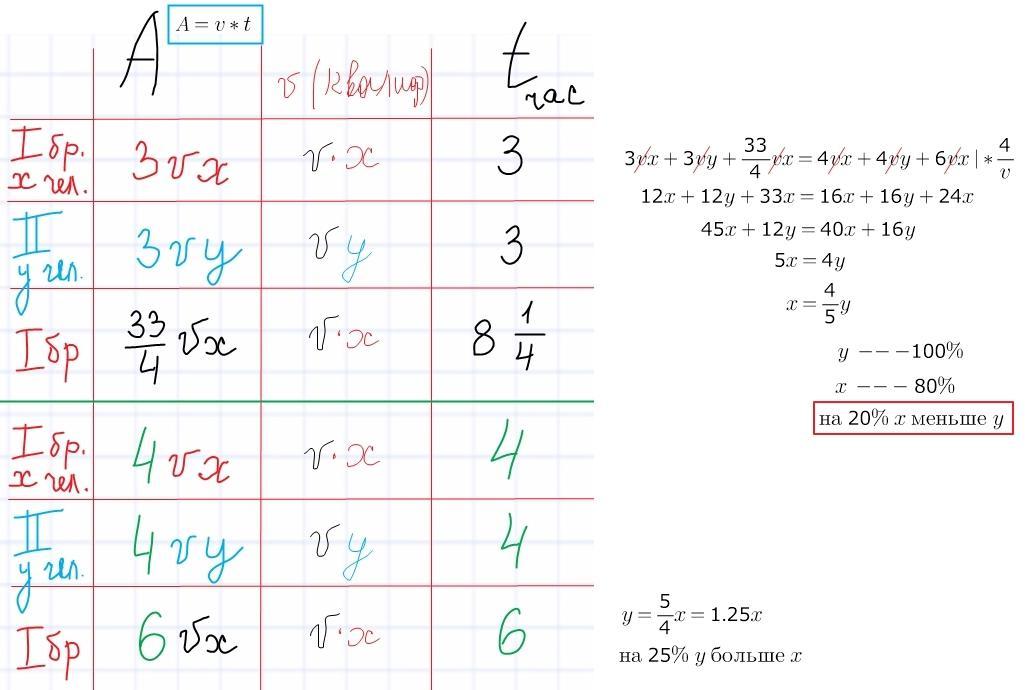 A
A = v * t
v (квалиф)
t час
I бр. x чел.
3vx
v·x
3
II y чел.
3vy
vy
3
I бр
33/4 vx
v·x
8 1/4
I бр. x чел.
4vx
v·x
4
II y чел.
4vy
vy
4
I бр
6vx
v·x
6
3vx + 3vy + 33/4 vx = 4vx + 4vy + 6vx | * 4/v
12x + 12y + 33x = 16x + 16y + 24x
45x + 12y = 40x + 16y
5x = 4y
x = 4/5 y
y − − −100%
x − − − 80%
на 20% x меньше y
y = 5/4 x = 1.25x
на 25% y больше x